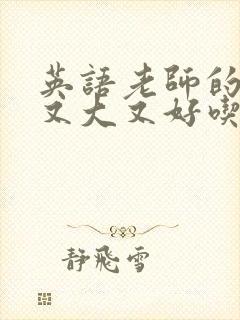 英語老師的
又大又好喫
靜飛雪